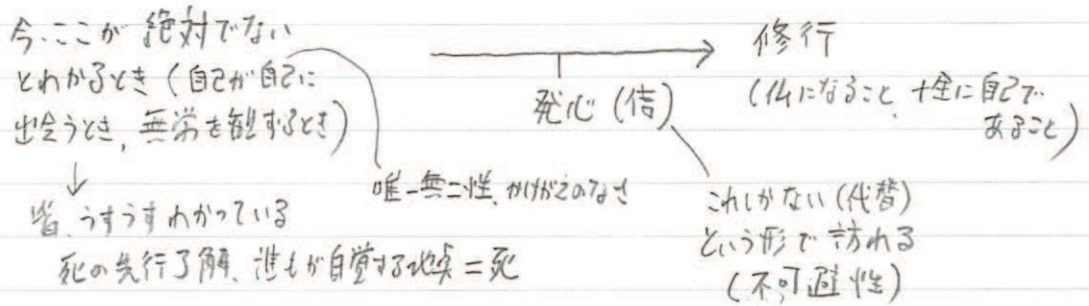 今、ここが絶対でない
とわかるとき(自己が自己に
出会うとき, 無常を観ずるとき)
↓
皆、うすうすわかっている
死の先行了解、誰もが自覚する地点=死
唯一無二性、かけがえのなさ
発心(信)
これしかない(代替)
という形で訪れる
(不可避性)
修行
(仏になること、十全に自己で
あること)